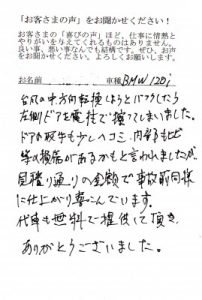 「お客さまの声」をお聞かせください!
お客さまの「喜びの声」ほど、仕事に情熱と
やりがいを与えてくれるものはありません。
良い事、悪い事なんでも結構です。ぜひ、お声
をお聞かせください。よろしくお願いします。
お名前 車種 BMW 120i
台風の中方向転換しようとバックしたら
左側ドアを電柱で擦ってしまいました。
ドアの取手も少しヘコミ、内部もモと
等の損傷があるかもと言われましたが、
見積り通りの金額で事故前同様
に仕上がり喜んでいます。
代車も無料で提供して頂き
ありがとうございました。